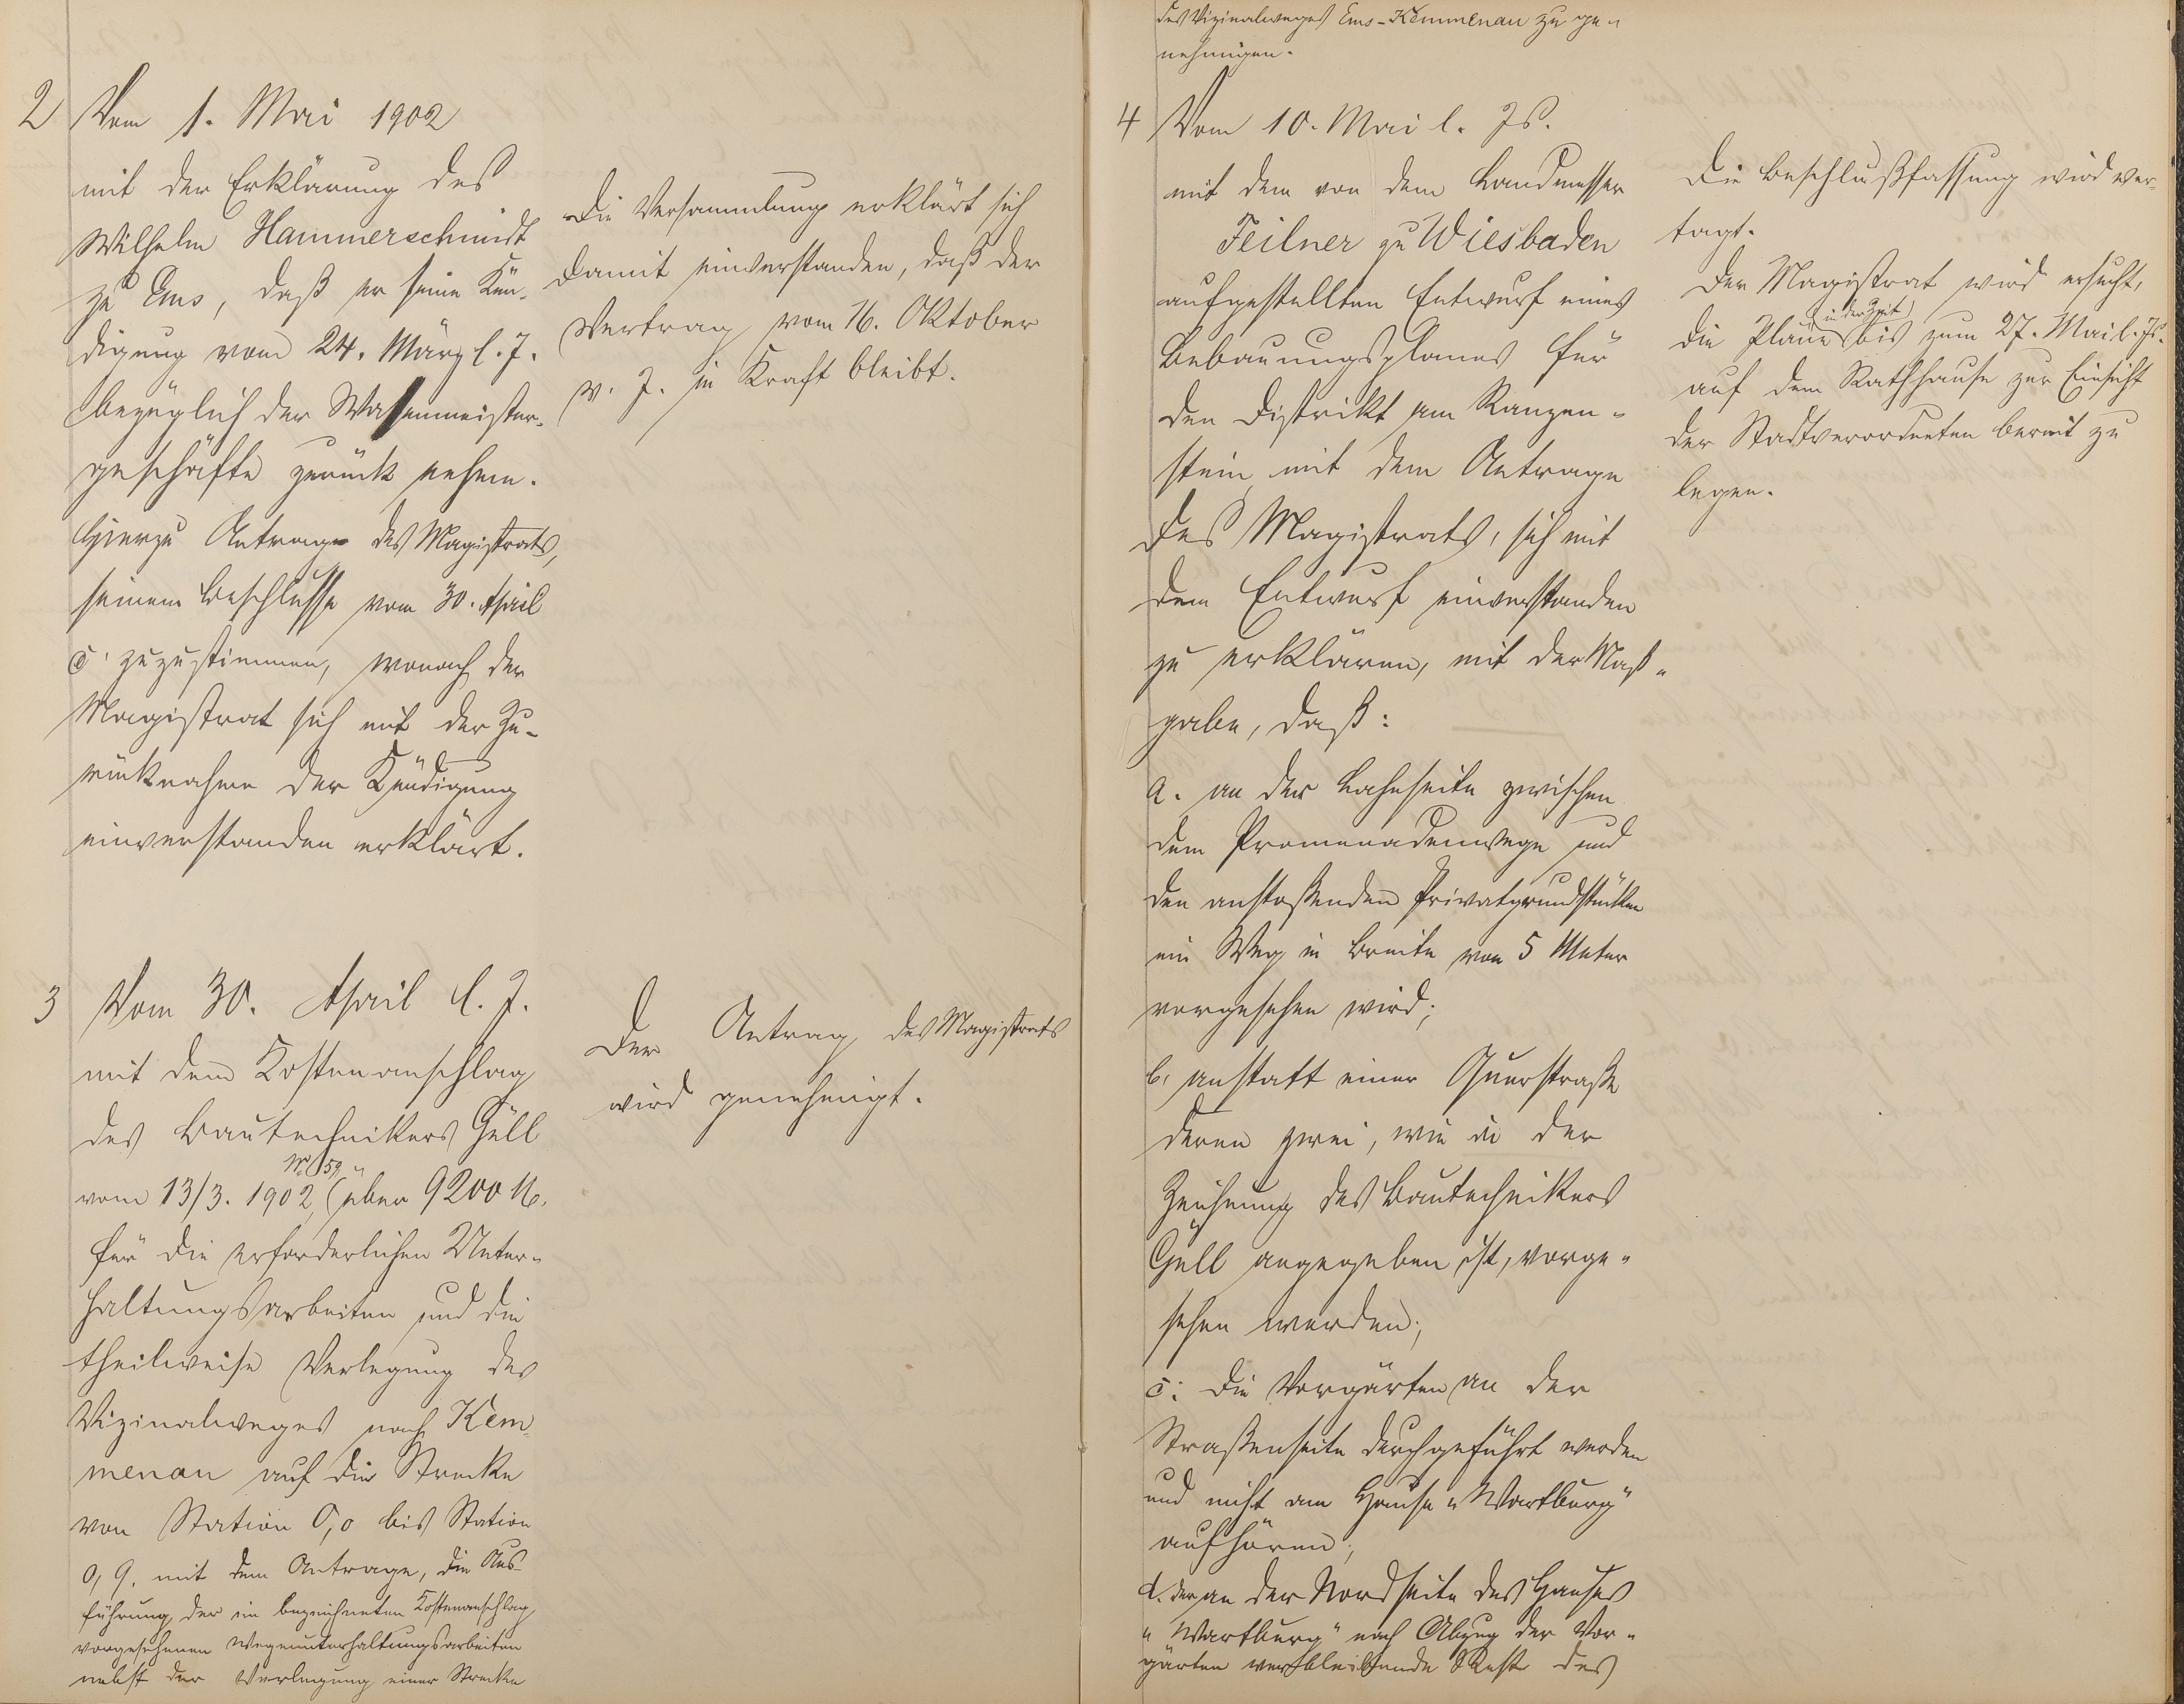 2 Vom 1. Mai 1902
mit der Erklärung des
Wilhelm Hammerschmidt
zu Ems, daß er seine Kün-
digung vom 24. März l. J.
bezüglich der Wasenmeister-
geschäfte zurück nehme.
Hierzu Antrag des Magistrats,
seinem Beschlusse vom 30. April
c. zuzustimmen, wonach der
Magistrat sich mit der Zu-
rücknahme der Kündigung
einverstanden erklärt.
Die Versammlung erklärt sich
damit einverstanden, daß der
Vertrag vom 16. Oktober
v. J. in Kraft bleibt.
3 Vom 30. April l. J.
mit dem Kostenanschlag
des Bautechnikers Güll
No 59
vom 13/3. 1902, über 9200 M.
für die erforderlichen Unter-
haltungsarbeiten und die
theilweise Verlegung des
Vizinalweges nach Kem-
menau auf die Strecke
von Station 0,0 bis Station
0,9. mit dem Antrage, die Aus-
führung der im bezeichneten Kostenanschlag
vorgesehenen Wegeunterhaltungsarbeiten
nebst der Verlegung einer Strecke
Der Antrag des Magistrats
wird genehmigt.
des Vizinalweges Ems-Kemmenau zu ge-
nehmigen.
4 Vom 10. Mai l. Js.
mit dem von dem Landmesser
Feilner zu Wiesbaden
aufgestellten Entwurf eines
Bebauungsplanes für
den Distrikt am Ranzen-
stein mit dem Antrage
des Magistrats, sich mit
dem Entwurf einverstanden
zu erklären, mit der Maß-
gabe, daß:
a. an der Lahnseite zwischen
dem Promenadenwege und
den anstoßenden Privatgrundstücken
ein Weg in Breite von 5 Meter
vorgesehen wird;
b. anstatt einer Querstraße
deren zwei, wie in der
Zeichnung des Bautechnikers
Güll angegeben ist, vorge-
sehen werden;
c. die Vorgärten an der
Straßenseite durchgeführt werden
und nicht am Hause "Wartburg"
aufhören;
d. der an der Nordseite des Hauses
"Wartburg" nach Abzug der Vor-
gärten verbleibende Reste des
Die Beschlußfassung wird ver-
tagt.
Der Magistrat wird ersucht,
in der Zeit
die Pläne bis zum 27. Mai l. Js.
auf dem Rathhause zur Einsicht
der Stadtverordneten bereit zu
legen.